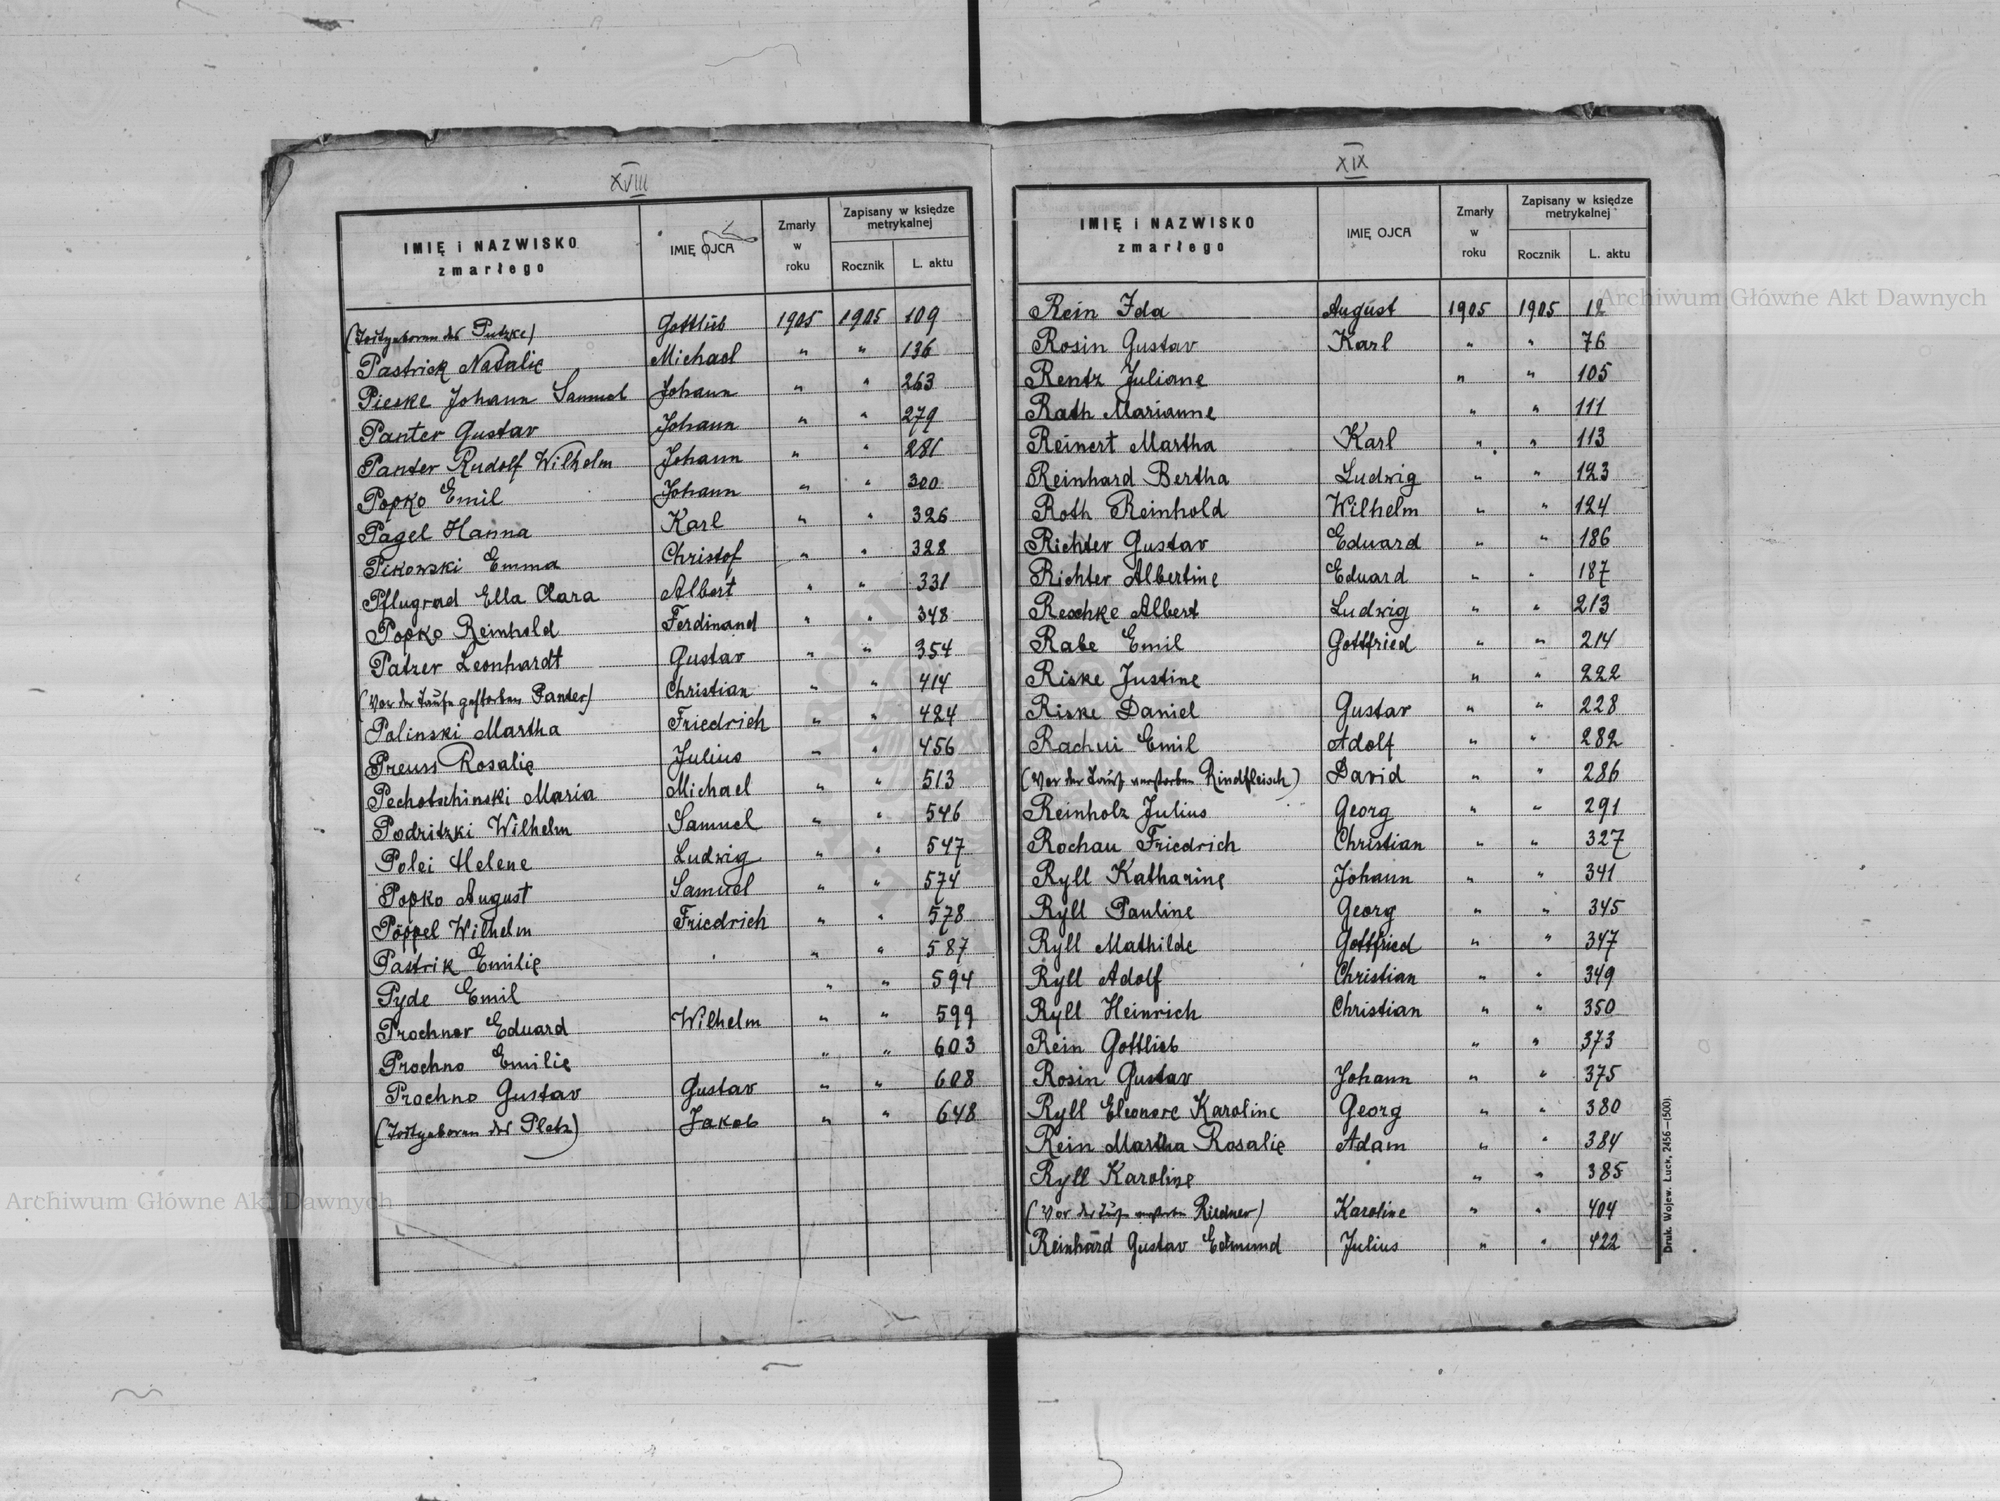 XVIII
IMIĘ i NAZWISKO zmarłego IMIĘ OJCA Zmarły w roku Zapisany w księdze metrykalnej Rocznik L. aktu
(Totgeboren des Putzke) Gottlieb 1905 1905 109
Pastrick Natalie Michael " " 136
Pieske Johann Samuel Johann " " 263
Panter Gustav Johann " " 279
Panter Rudolf Wilhelm Johann " " 281
Popko Emil Johann " " 300
Pagel Hanna Karl " " 326
Pikowski Emma Christof " " 328
Pflugrad Ella Clara Albert " " 331
Popko Reinhold Ferdinand " " 348
Patzer Leonhardt Gustav " " 354
(Vor der Taufe gestorben Panter) Christian " " 414
Polinski Martha Friedrich " " 424
Preuss Rosalie Julius " " 456
Pechotschinski Maria Michael " " 513
Podritzki Wilhelm Samuel " " 546
Polei Helene Ludwig " " 547
Popko August Samuel " " 574
Pöppel Wilhelm Friedrich " " 578
Pastrik Emilie " " 587
Pyde Emil " " 594
Prochner Eduard Wilhelm " " 599
Prochno Emilie " " 603
Prochno Gustav Gustav " " 608
(Totgeboren des Pletz) Jakob " " 648
XIX
IMIĘ i NAZWISKO zmarłego IMIĘ OJCA Zmarły w roku Zapisany w księdze metrykalnej Rocznik L. aktu
Rein Ida August 1905 1905 12
Rosin Gustav Karl " " 76
Rentz Juliane " " 105
Rath Marianne " " 111
Reinert Martha Karl " " 113
Reinhard Bertha Ludwig " " 123
Roth Reinhold Wilhelm " " 124
Richter Gustav Eduard " " 186
Richter Albertine Eduard " " 187
Reschke Albert Ludwig " " 213
Rabe Emil Gottfried " " 214
Riske Justine " " 222
Riske Daniel Gustav " " 228
Rachui Emil Adolf " " 282
(Vor der Taufe verstorben Rindfleisch) David " " 286
Reinholz Julius Georg " " 291
Rochau Friedrich Christian " " 327
Ryll Katharine Johann " " 341
Ryll Pauline Georg " " 345
Ryll Mathilde Gottfried " " 347
Ryll Adolf Christian " " 349
Ryll Heinrich Christian " " 350
Rein Gottlieb " " 373
Rosin Gustav Johann " " 375
Ryll Eleonore Karoline Georg " " 380
Rein Martha Rosalie Adam " " 384
Ryll Karoline " " 385
(Vor der Taufe verstorben Riedner) Karoline " " 404
Reinhard Gustav Edmund Julius " " 422
Druk. Wojew. Łuck, 2456—(500)
Archiwum Główne Akt Dawnych
Archiwum Główne Akt Dawnych